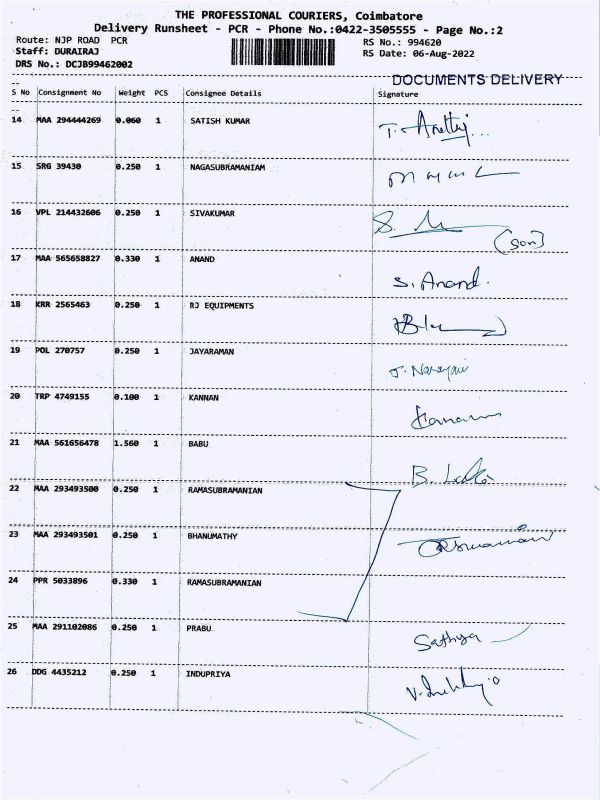 THE PROFESSIONAL COURIERS, Coimbatore
Delivery Runsheet - PCR - Phone No.:0422-3505555 - Page No.:2
Route: NJP ROAD PCR RS No.: 994620
Staff: DURAIRAJ RS Date: 06-Aug-2022
DRS No.: DCJB99462002
DOCUMENTS DELIVERY
S No Consignment No Weight PCS Consignee Details Signature
14 MAA 294444269 0.060 1 SATISH KUMAR
15 SRG 39430 0.250 1 NAGASUBRAMANIAM
16 VPL 214432606 0.250 1 SIVAKUMAR (Son)
17 MAA 565658827 0.330 1 ANAND S. Anand.
18 KRR 2565463 0.250 1 RJ EQUIPMENTS
19 POL 270757 0.250 1 JAYARAMAN J. Narayan
20 TRP 4749155 0.100 1 KANNAN
21 MAA 561656478 1.560 1 BABU
22 MAA 293493500 0.250 1 RAMASUBRAMANIAN
23 MAA 293493501 0.250 1 BHANUMATHY
24 PPR 5033896 0.330 1 RAMASUBRAMANIAN
25 MAA 291102086 0.250 1 PRABU Sathya
26 DDG 4435212 0.250 1 INDUPRIYA